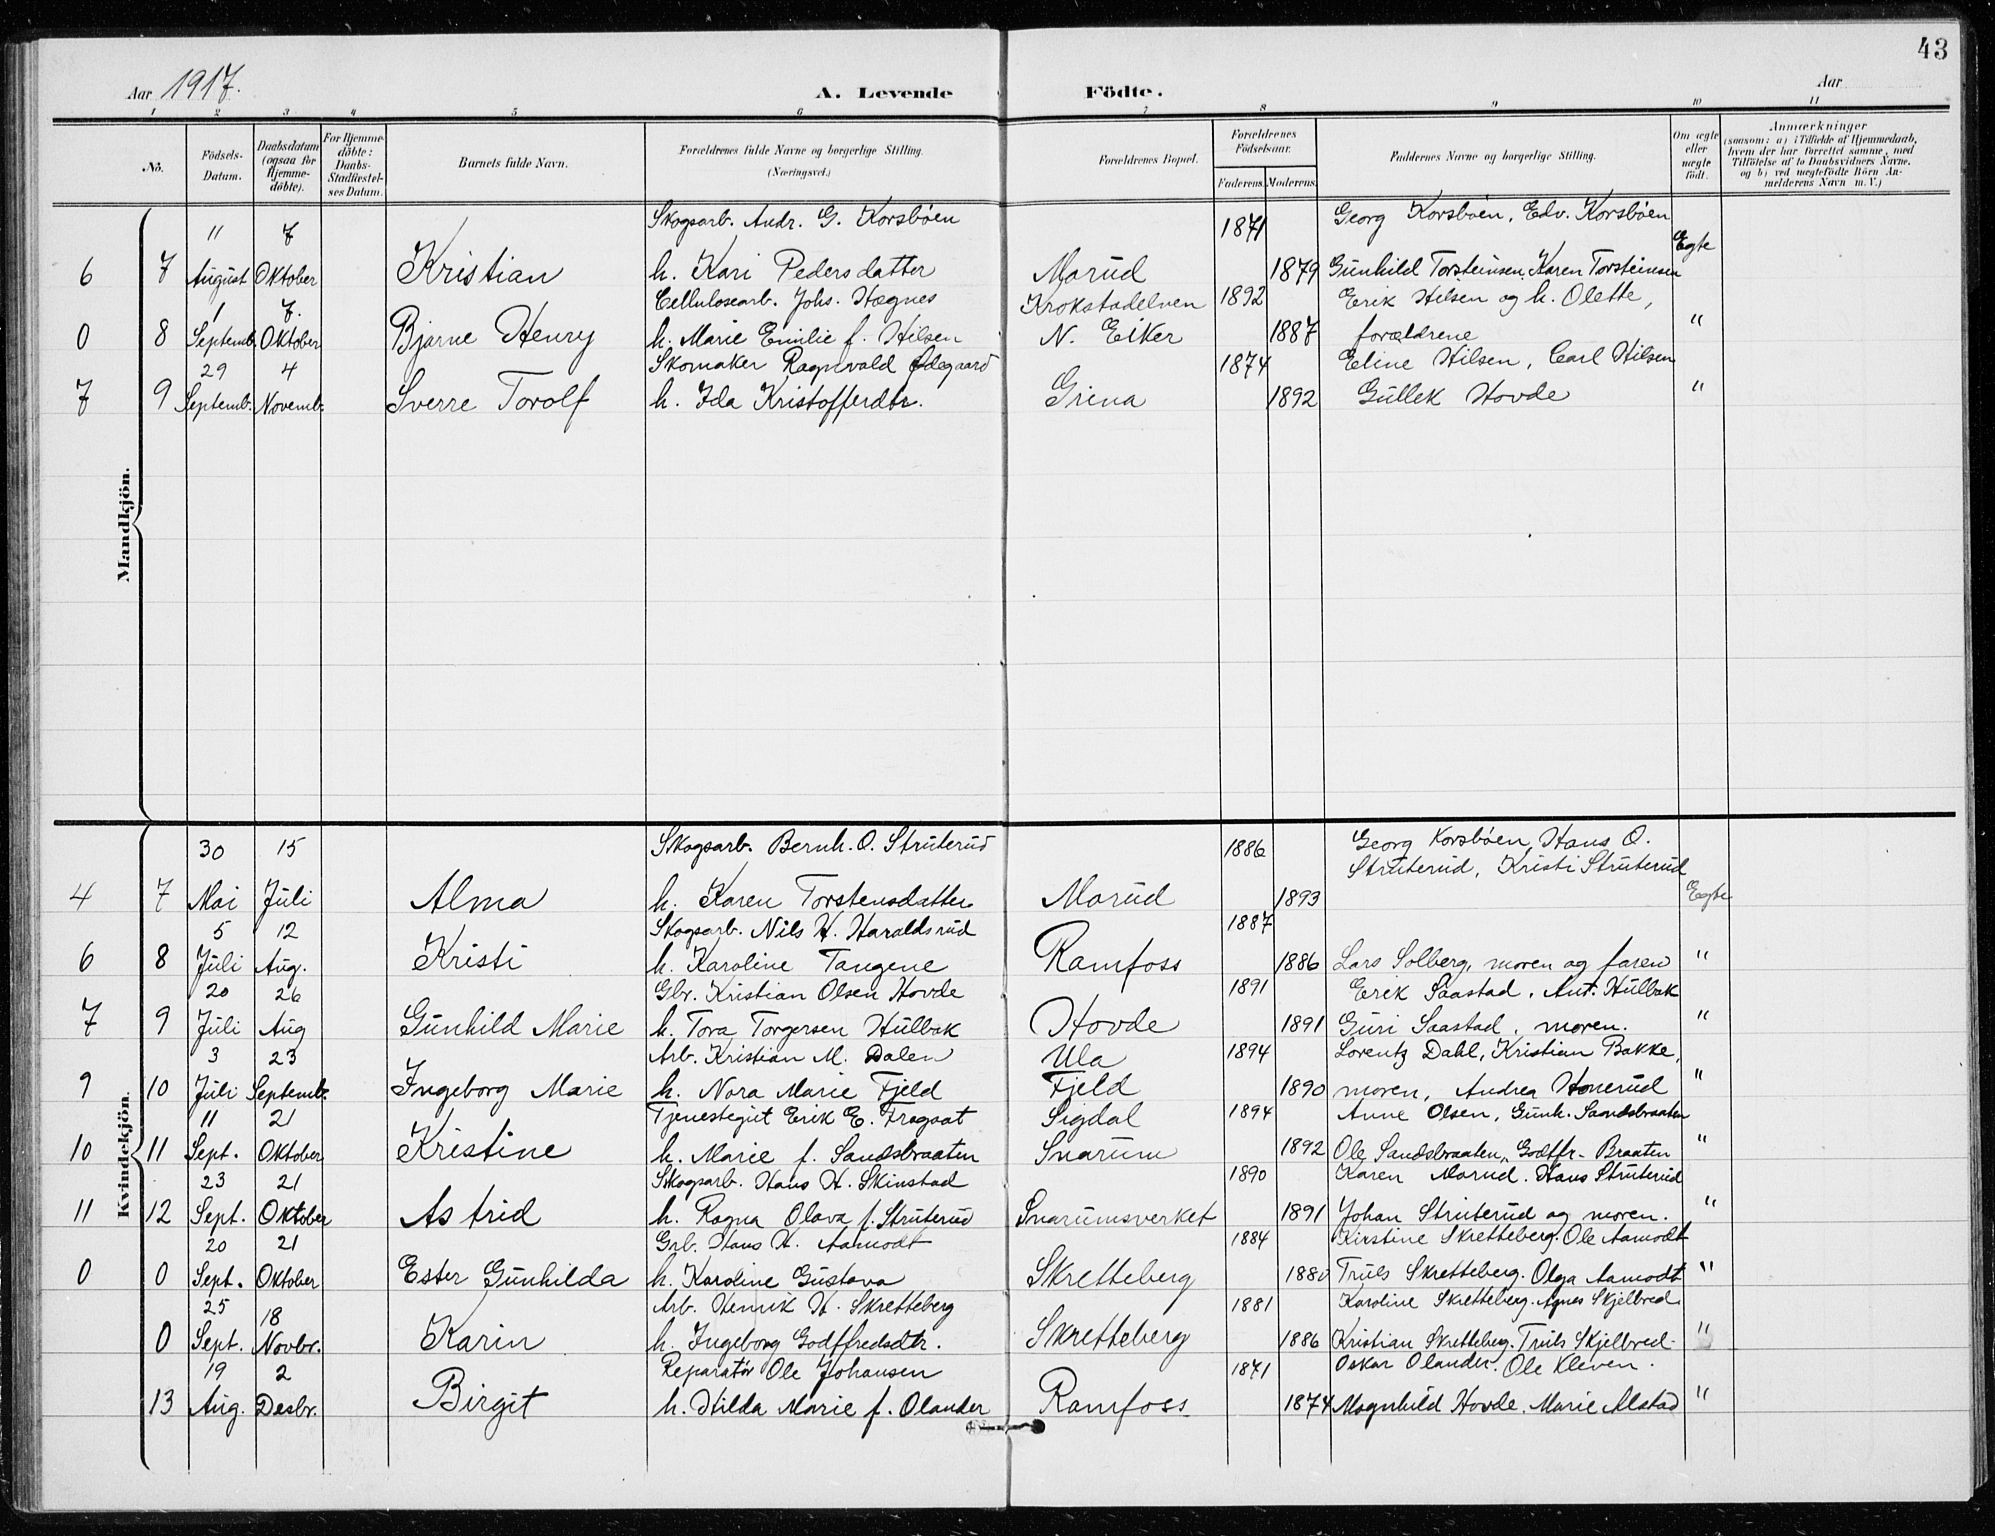 43
Aar 1917.
A. Levende Födte.
Aar
1 2 3 4 5 6 7 8 9 10 11
No.
Födsels-Datum.
Daabsdatum (ogsaa for Hjemme-döbte).
For Hjemme-döbte: Daabs-Stadfæstel-ses Datum.
Barnets fulde Navn.
Forældrenes fulde Navne og borgerlige Stilling. (Næringsvei.)
Forældrenes Bopæl.
Forældrenes Födselsaar.
Faderens. Moderens.
Faddernes Navne og borgerlige Stilling.
Om ægte eller uægte födt.
Anmærkninger
(saasom: a) i Tilfælde af Hjemmedaab, hvem der har forrettet samme, med Tilföielse af to Daabsvidners Navne, og b) ved uægtefödte Börn An-melderens Navn m. V.)
Mandkjön.
11 7 Skogsarb. Andr. G. Korsböen 1871 Georg Korsböen, Edv. Korsböen
6 7 August Oktober Kristian h. Kari Pedersdatter Morud 1879 Gunhild Torsteinsen, Karen Torsteinsen Egte
1 7. Cellulosearb. Johs. Hægnes Krokstadelven 1892 Erik Hilsen og h. Olette,
0 8 Septemb. Oktober Bjarne Henry h. Marie Emilie f. Hilsen N. Eiker 1887 forældrene "
29 4 Skomaker Ragnvald Ødegaard 1874 Eline Hilsen, Carl Hilsen
7 9 Septemb. Novemb. Sverre Torolf h. Ida Kristofferdtr. Grina 1892 Gullek Hovde "
Kvindekjön.
30 15 Skogsarb. Bernh. O. Struterud 1886 Georg Korsböen, Hans O.
Struterud, Kristi Struterud
4 7 Mai Juli Alma h. Karen Torstensdatter Morud 1893 Egte
5 12 Skogsarb. Nils H. Haraldsrud 1887
6 8 Juli Aug. Kristi h. Karoline Tangene Ramfoss 1886 Lars Solberg, moren og faren "
20 26 Gbr. Kristian Olsen Hovde 1891 Erik Saastad, Ant. Hulbak
7 9 Juli Aug Gunhild Marie h. Tora Torgersen Hulbak Hovde 1891 Guri Saastad, moren. "
3 23 Arb. Kristian M. Dalen Ula 1894 Lorentz Dahl, Kristian Bakke,
9 10 Juli Septemb. Ingeborg Marie h. Nora Marie Fjeld Fjeld 1890 moren, Andrea Honerud "
11 21 Tjenestegut Erik E. Fragaat Sigdal 1894 Anne Olsen, Gunh. Sandsbraaten
10 11 Sept. Oktober Kristine h. Marie f. Sandsbraaten Snarum 1892 Ole Sandsbraaten, Godffr. Braaten "
23 21 Skogsarb. Hans H. Skinstad 1890 Karen Morud. Hans Struterud
11 12 Sept. Oktober Astrid h. Ragna Olava f. Struterud Snarumsverket 1891 Johan Struterud og moren. "
20 21 Grb. Hans H. Aamodt 1884 Kirstine Skretteberg. Ole Aamodt
0 0 Sept. Oktober Ester Gunhilda h. Karoline Gustava Skretteberg 1880 Truls Skretteberg. Olga Aamodt "
25 18 Arb. Henrik H. Skretteberg 1881 Karoline Skretteberg. Agnes Skjelbred
0 Sept. Novbr. Karin h. Ingeborg Godffredsdtr. Skretteberg 1886 Kristian Skretteberg. Truls Skjelbred "
19 2 Reparatør Ole Johansen 1871 Oskar Olander. Ole Kleven.
13 Aug. Desbr. Birgit h. Hilda Marie f. Olander Ramfoss 1874 Magnhild Hovde. Marie Alstad "